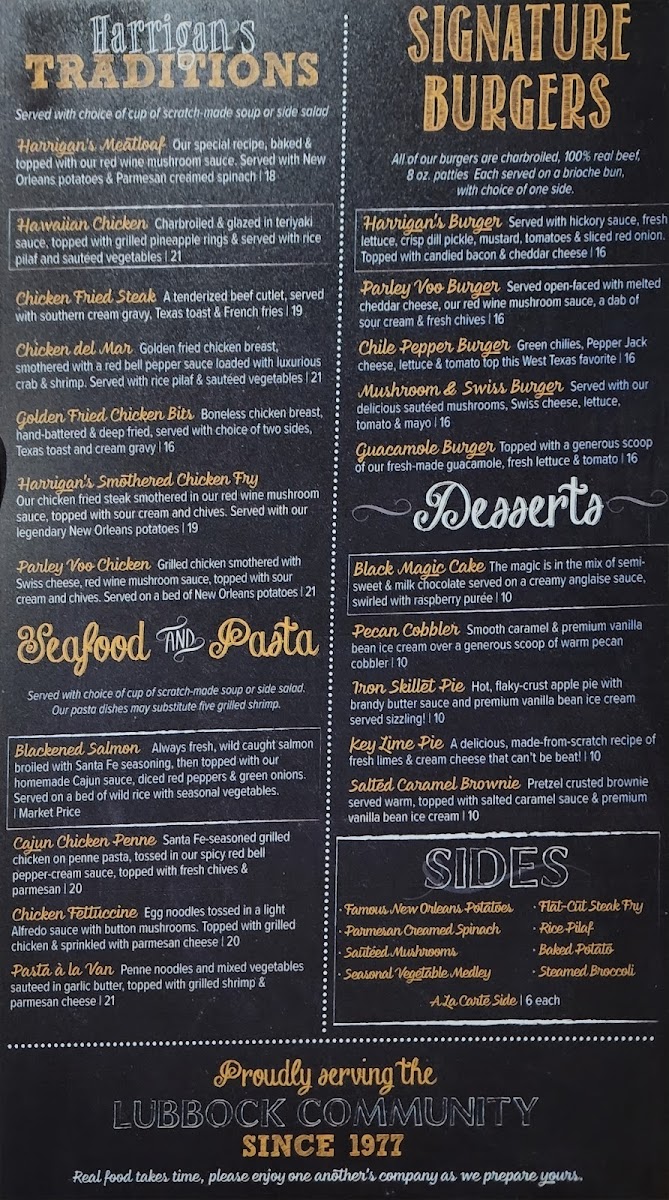 Harrigan's
TRADITIONS
Served with choice of cup of scratch-made soup or side salad
Harrigan's Meatloaf Our special recipe, baked &
topped with our red wine mushroom sauce. Served with New
Orleans potatoes & Parmesan creamed spinach | 18
Hawaiian Chicken Charbroiled & glazed in teriyaki
sauce, topped with grilled pineapple rings & served with rice
pilaf and sautéed vegetables | 21
Chicken Fried Steak A tenderized beef cutlet, served
with southern cream gravy, Texas toast & French fries | 19
Chicken del Mar Golden fried chicken breast,
smothered with a red bell pepper sauce loaded with luxurious
crab & shrimp. Served with rice pilaf & sautéed vegetables | 21
Golden Fried Chicken Bits Boneless chicken breast,
hand-battered & deep fried, served with choice of two sides,
Texas toast and cream gravy | 16
Harrigan's Smothered Chicken Fry
Our chicken fried steak smothered in our red wine mushroom
sauce, topped with sour cream and chives. Served with our
legendary New Orleans potatoes | 19
Parley Voo Chicken Grilled chicken smothered with
Swiss cheese, red wine mushroom sauce, topped with sour
cream and chives. Served on a bed of New Orleans potatoes | 21
Seafood AND Pasta
Served with choice of cup of scratch-made soup or side salad.
Our pasta dishes may substitute five grilled shrimp.
Blackened Salmon Always fresh, wild caught salmon
broiled with Santa Fe seasoning, then topped with our
homemade Cajun sauce, diced red peppers & green onions.
Served on a bed of wild rice with seasonal vegetables.
| Market Price
Cajun Chicken Penne Santa Fe-seasoned grilled
chicken on penne pasta, tossed in our spicy red bell
pepper-cream sauce, topped with fresh chives &
parmesan | 20
Chicken Fettuccine Egg noodles tossed in a light
Alfredo sauce with button mushrooms. Topped with grilled
chicken & sprinkled with parmesan cheese | 20
Pasta à la Van Penne noodles and mixed vegetables
sauteed in garlic butter, topped with grilled shrimp &
parmesan cheese | 21
SIGNATURE
BURGERS
All of our burgers are charbroiled, 100% real beef,
8 oz. patties Each served on a brioche bun,
with choice of one side.
Harrigan's Burger Served with hickory sauce, fresh
lettuce, crisp dill pickle, mustard, tomatoes & sliced red onion.
Topped with candied bacon & cheddar cheese | 16
Parley Voo Burger Served open-faced with melted
cheddar cheese, our red wine mushroom sauce, a dab of
sour cream & fresh chives | 16
Chile Pepper Burger Green chilies, Pepper Jack
cheese, lettuce & tomato top this West Texas favorite | 16
Mushroom & Swiss Burger Served with our
delicious sautéed mushrooms, Swiss cheese, lettuce,
tomato & mayo | 16
Guacamole Burger Topped with a generous scoop
of our fresh-made guacamole, fresh lettuce & tomato | 16
Desserts
Black Magic Cake The magic is in the mix of semi-
sweet & milk chocolate served on a creamy anglaise sauce,
swirled with raspberry purée | 10
Pecan Cobbler Smooth caramel & premium vanilla
bean ice cream over a generous scoop of warm pecan
cobbler | 10
Iron Skillet Pie Hot, flaky-crust apple pie with
brandy butter sauce and premium vanilla bean ice cream
served sizzling! | 10
Key Lime Pie A delicious, made-from-scratch recipe of
fresh limes & cream cheese that can't be beat! | 10
Salted Caramel Brownie Pretzel crusted brownie
served warm, topped with salted caramel sauce & premium
vanilla bean ice cream | 10
SIDES
· Famous New Orleans Potatoes
· Parmesan Creamed Spinach
· Sautéed Mushrooms
· Seasonal Vegetable Medley
· Flat-Cut Steak Fry
· Rice Pilaf
· Baked Potato
· Steamed Broccoli
A La Carte Side | 6 each
Proudly serving the
LUBBOCK COMMUNITY
SINCE 1977
Real food takes time, please enjoy one another's company as we prepare yours.